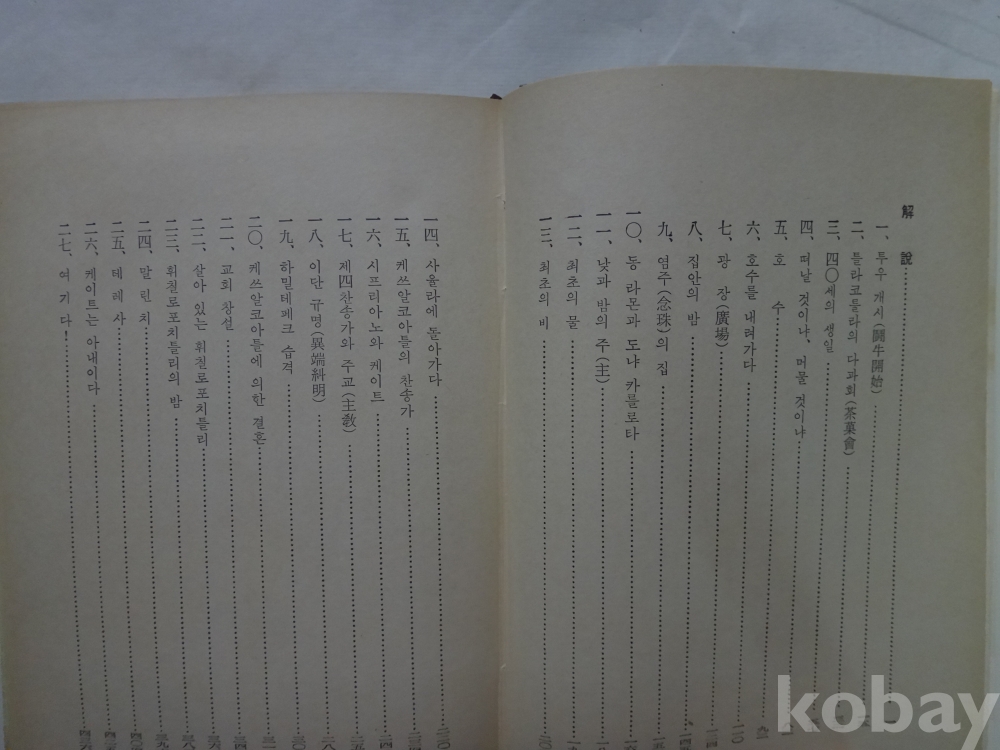 解 說
一、투우 개시(鬪牛開始)
二、틀라코틀라의 다과회(茶菓會)
三、四〇세의 생일
四、떠날 것이냐, 머물 것이냐
五、호 수
六、호수를 내려가다
七、광 장(廣場)
八、집안의 밤
九、염주(念珠)의 집
一〇、동 라몬과 도냐 카를로타
一一、낮과 밤의 주(主)
一二、최초의 물
一三、최초의 비
一四、사율라에 돌아가다
一五、케쓰알코아틀의 찬송가
一六、시프리아노와 케이트
一七、제四찬송가와 주교(主敎)
一八、이단 규명(異端糾明)
一九、하밀테페크 습격
二〇、케쓰알코아틀에 의한 결혼
二一、교회 창설
二二、살아 있는 휘칠로포치틀리
二三、휘칠로포치틀리의 밤
二四、말 린 치
二五、테 레 사
二六、케이트는 아내이다
二七、여 기 다!
kobay